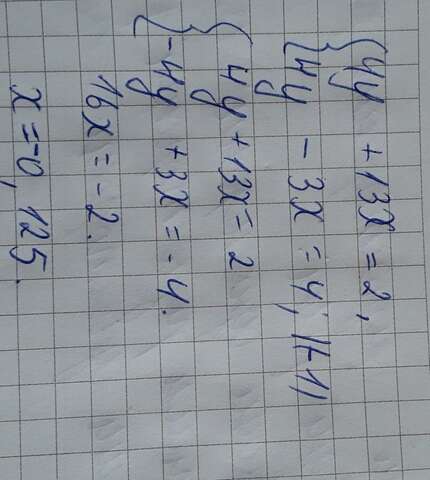 4y + 13x = 2,
4y - 3x = 4; ||(-1)
4y + 13x = 2
-4y + 3x = -4.
16x = -2.
x = -0,125.